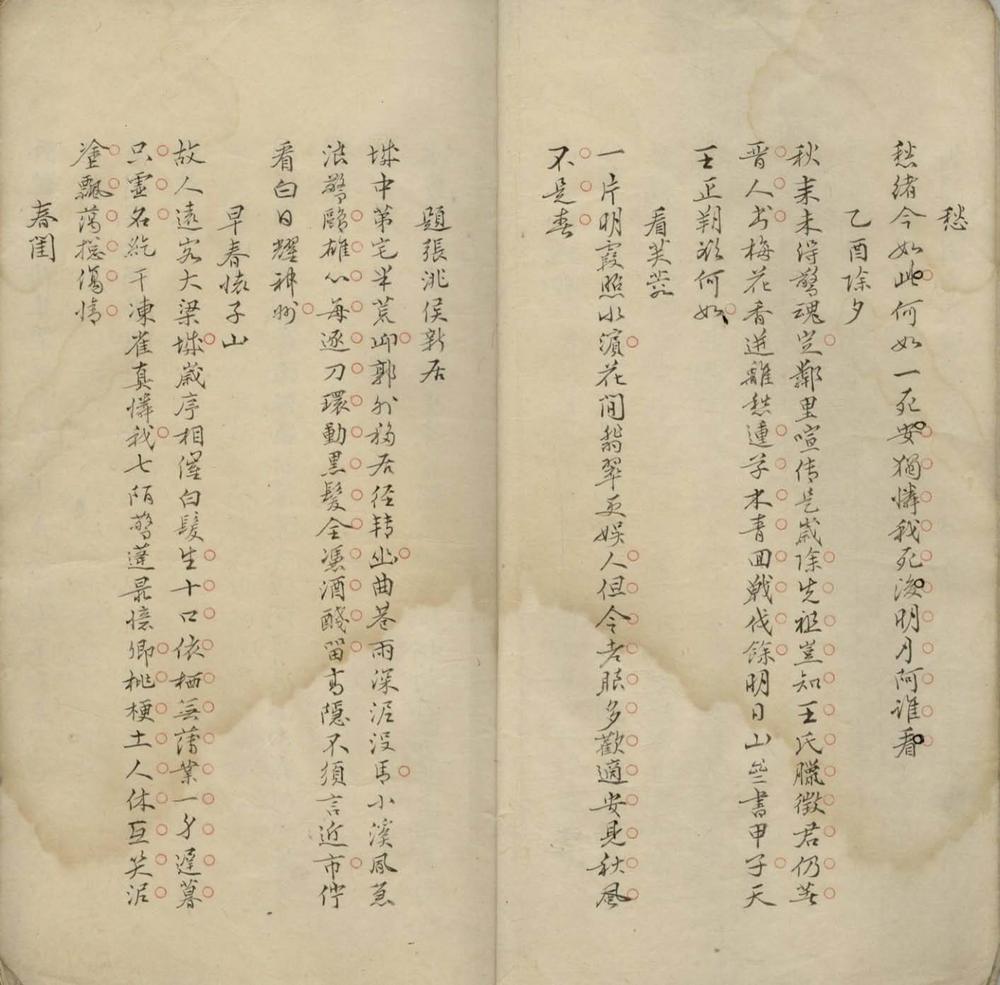 愁
愁緒今如此何如一死安獨憐我死後明月阿誰看
乙酉除夕
秋来未得驚魂定鄰里喧传是歲除先祖豈知王氏臘徵君仍草
晋人书梅花香送離愁連草木青回戰伐餘明日山無書甲子天
王正朔欲何如
看芙蓉
一片明霞照水濱花間翡翠更娛人但令老眼多歡適安見秋風
不是春
題張洮侯新居
城中第宅半荒郭外移居径转幽曲巷雨深泥没馬小溪風急
浪驚鷗雄心每逐刀環動黑髮全憑酒醆留高隱不須言近市佇
看白日耀神州
早春懷子山
故人遠客大梁城歲序相催白髮生十口依栖無蒪業一身遲暮
只虚名紇干凍雀真憐我七陌驚蓬最憶卿桃梗土人休互笑泥
塗飄蕩捴傷情
春閨